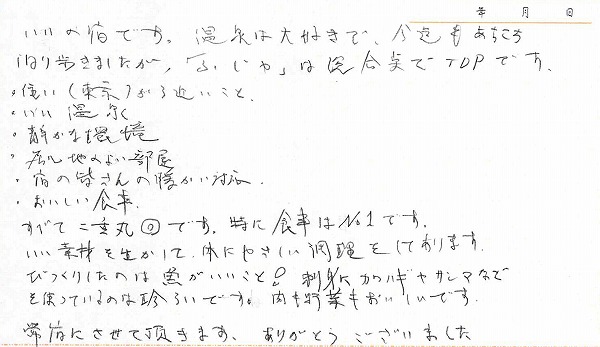 年 月 日
いい宿です。温泉は大好きで、今迄もあちこち
回り歩きましたが、「ふじや」は総合点でTOPです。
・住い(東京)から近いこと、
・いい温泉
・静かな環境
・居心地のよい部屋
・宿の皆さんの暖かい対応.
・おいしい食事.
すべて二重丸◎です。特に食事はNo1です。
いい素材を生かして、体にやさしい調理をしております。
びっくりしたのは魚がいいこと! 刺身にカワハギやサンマなど
を使っているのは珍らいです。肉も野菜もおいしいです。
常宿にさせて頂きます、ありがとうございました